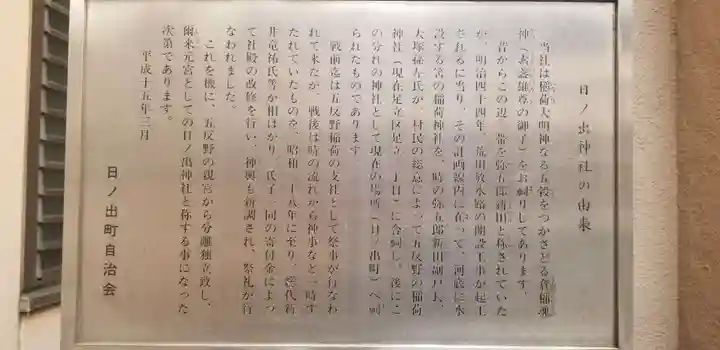 日ノ出神社の由来
当社は稲荷大明神なる五穀をつかさどる倉稲魂
神(素盞雄尊の御子)をお祠りしてあります。
昔からこの辺一帯を弥五郎新田と称されていた
が、明治四十四年、荒川放水路の開設工事が起工
されるに当り、その計画線内に在って、河底に水
設する筈の稲荷神社を、時の弥五郎新田副戸長、
大塚孫左氏が、村民の総意によって五反野の稲荷
神社(現在足立区足立 丁目)に合祠し、後にこ
の分れの神社として現在の場所(日ノ出町)へ祠
られたものであります
戦前迄は五反野稲荷の支社として祭事が行なわ
れて来たが、戦後は時の流れから神事など一時す
たれていたものを、昭和 十八年に至り、 代 
井竜祐氏等が相はかり、氏子一同の寄付金によっ
て社殿の改修を行い、神輿も新調され、祭礼が行
なわれました。
これを機に、五反野の親宮から分離独立致し、
爾来元宮としての日ノ出神社と称する事になった
次第であります。
平成十五年三月
日ノ出町自治会